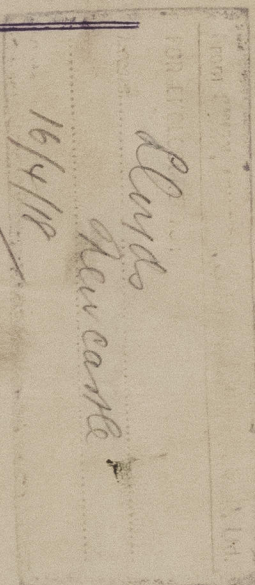 Lloyds
Newcastle
16/4/18